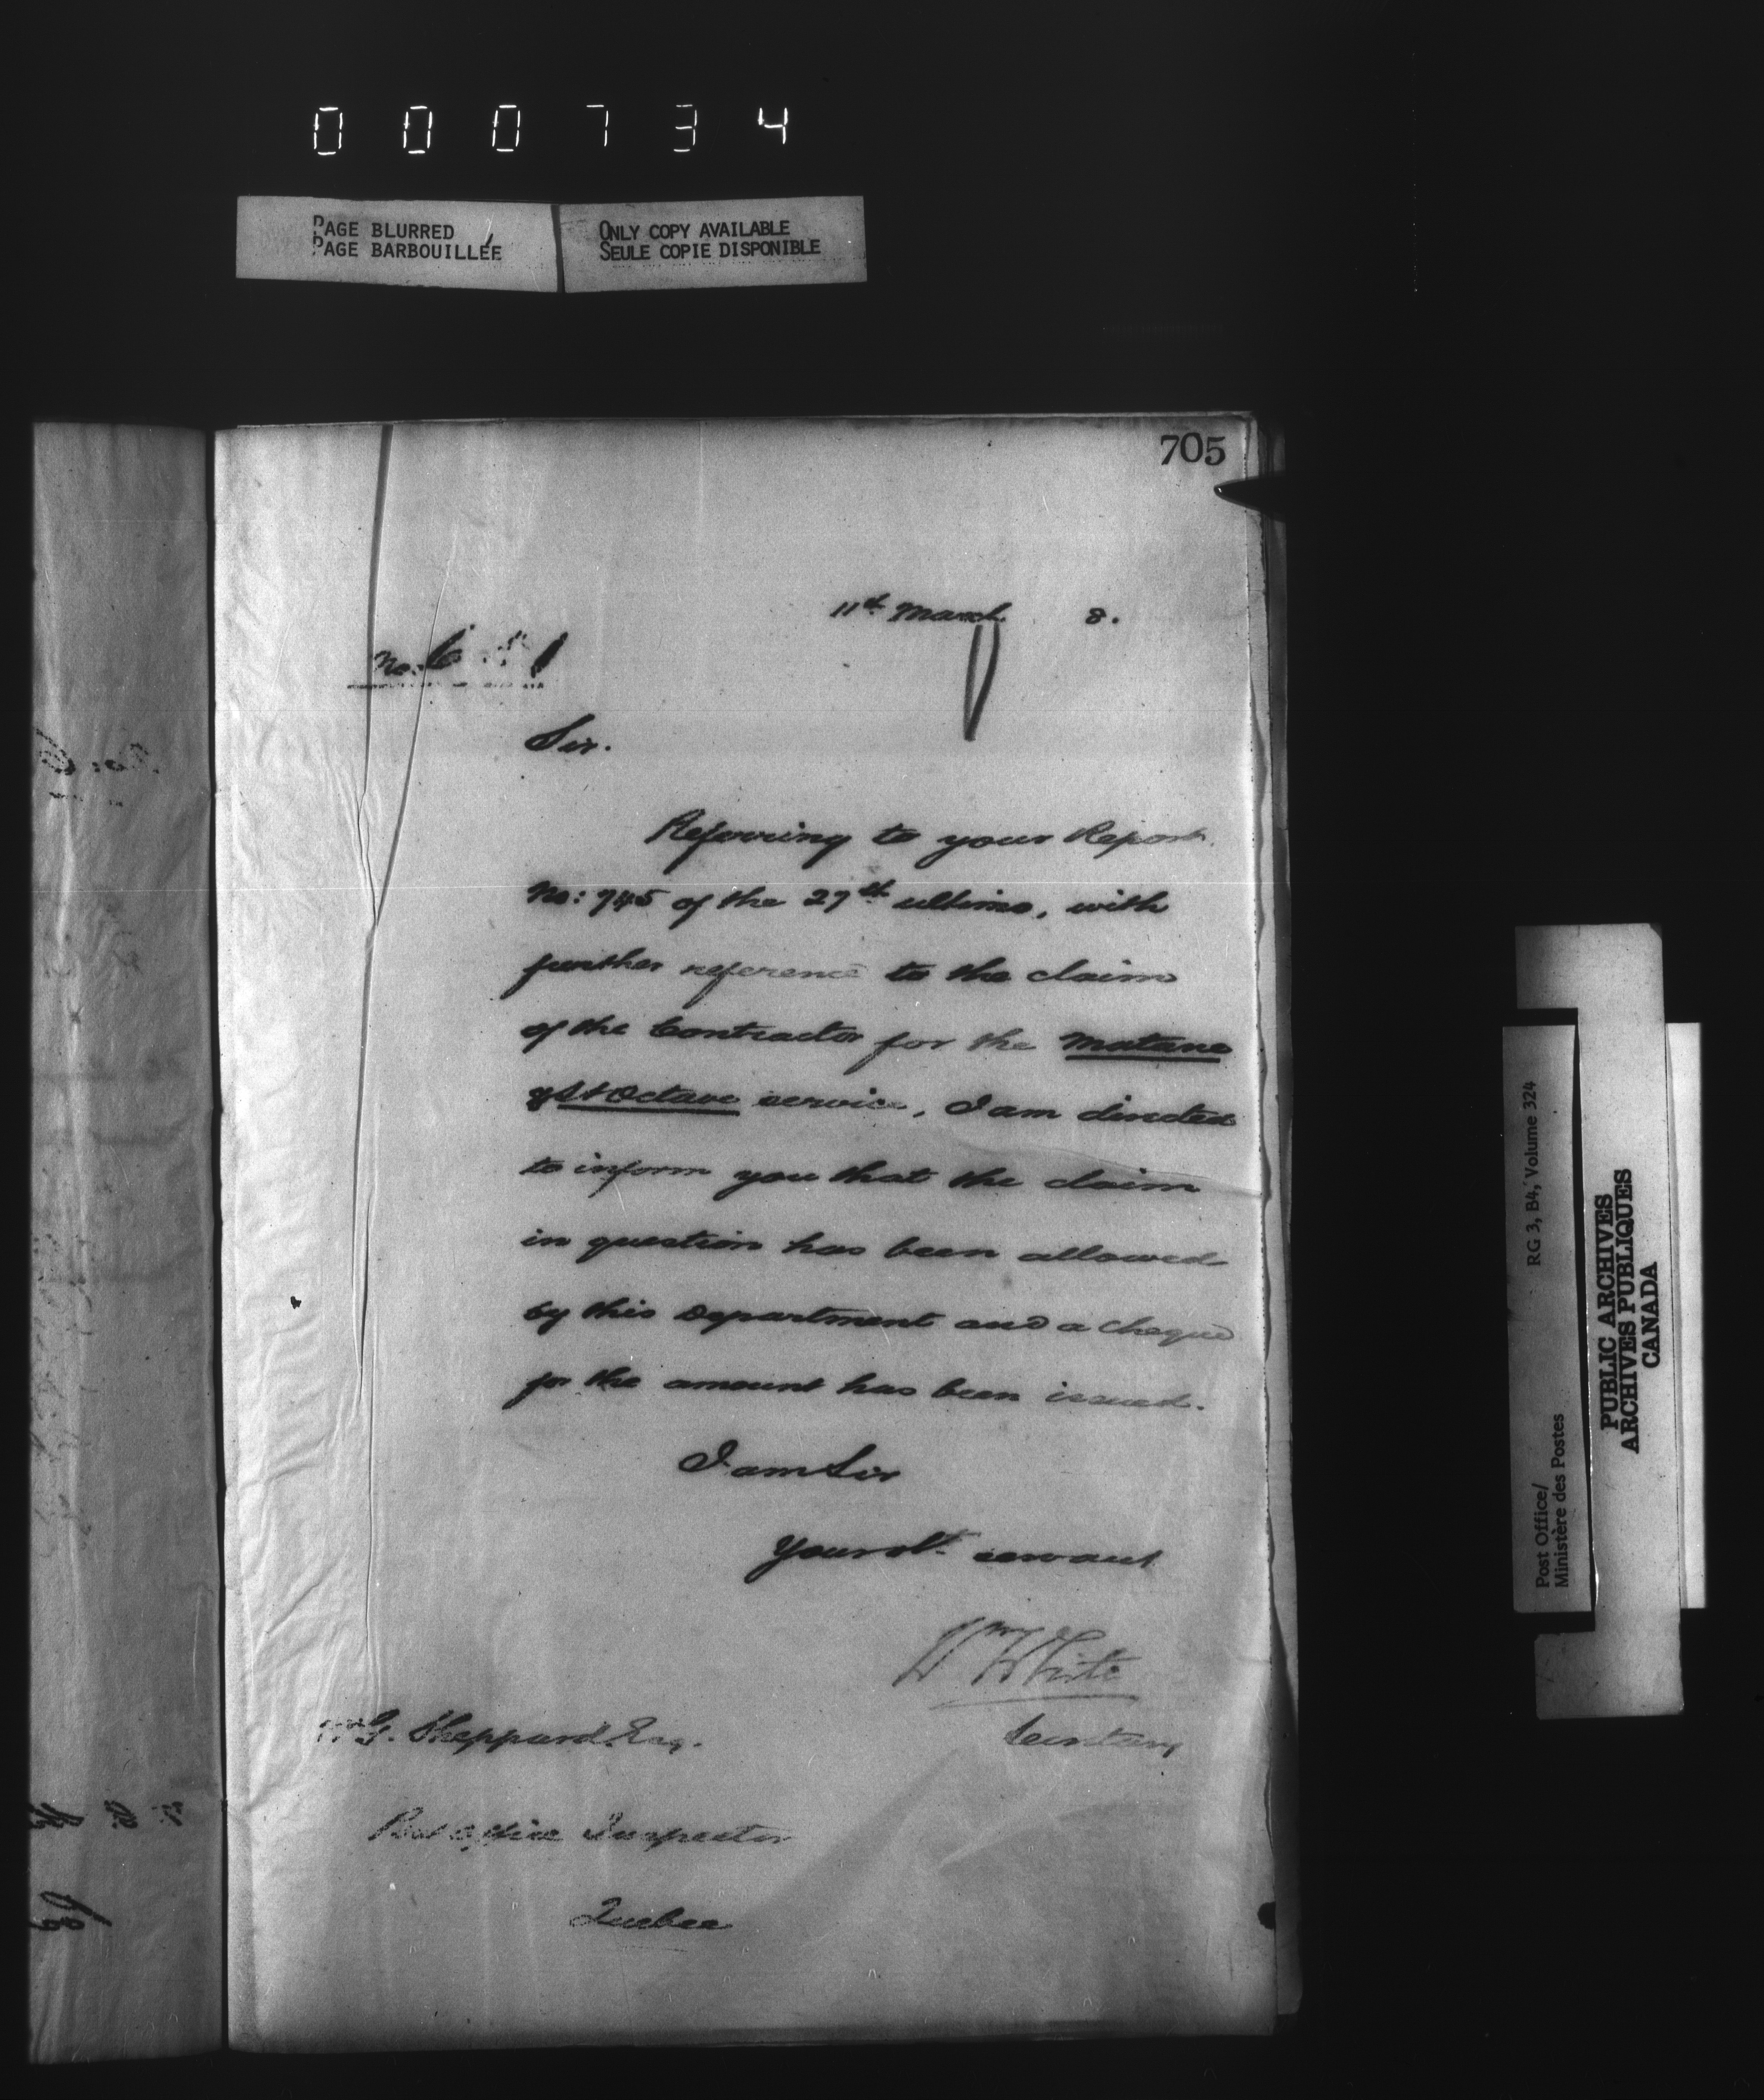 000734
PAGE BLURRED
PAGE BARBOUILLÉE
ONLY COPY AVAILABLE
SEULE COPIE DISPONIBLE
705
11th March 8.
No: 6
Sir.
Referring to your Report
No: 745 of the 27th ultimo, with
further reference to the claim
of the Contractor for the Matane
& St Octave service, I am directed
to inform you that the claim
in question has been allowed
by this Department and a cheque
for the amount has been issued.
I am Sir
Your obt. servant
Wm White
Secretary
W. G. Sheppard. Esq.
Post Office Inspector
Quebec
Post Office/
Ministère des Postes
RG 3, B4, Volume 324
PUBLIC ARCHIVES
ARCHIVES PUBLIQUES
CANADA